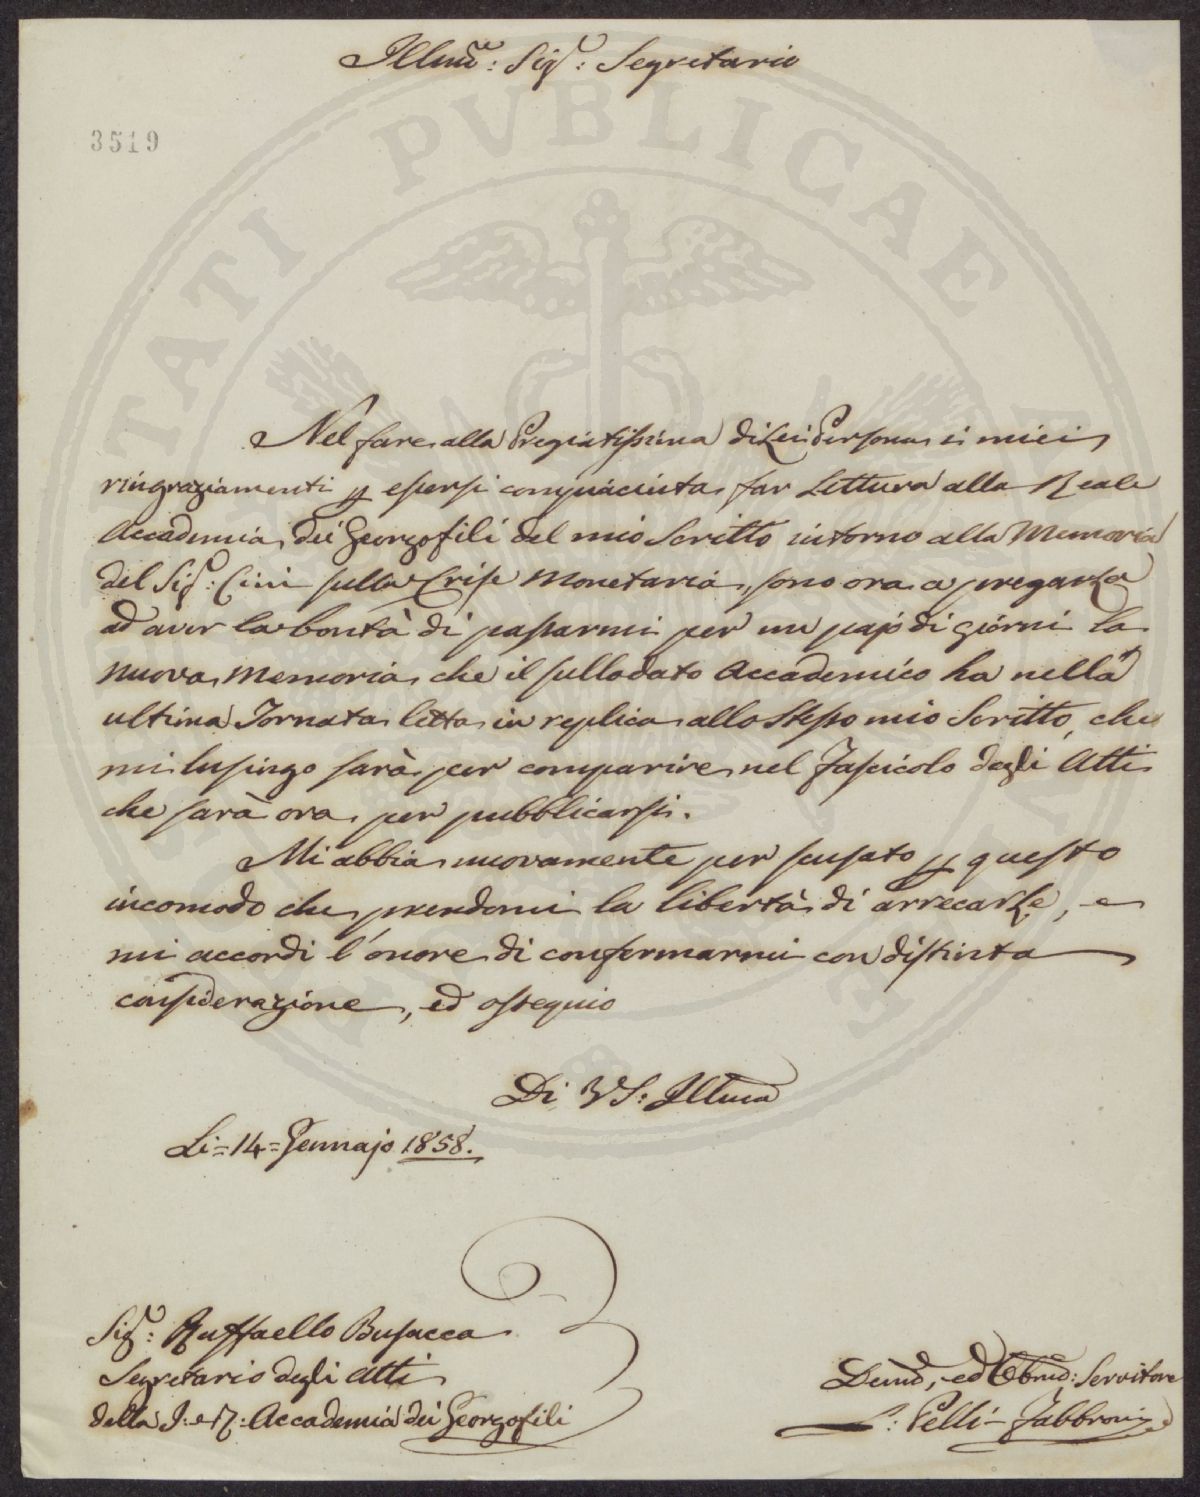 Illmo: Sigr: Segretario
3519
PUBLICAE
Nel fare alla Pregiatissima di Lei Persona i miei
ringraziamenti p essersi compiaciuta far Lettura alla Reale
Accademia dei Georgofili del mio Scritto intorno alla Memoria
del Sigr: Cini sulla Crise Monetaria, sono ora a pregarla
ad aver la bontà di passarmi per un pajo di giorni la
nuova Memoria che il sullodato Accademico ha nella
ultima Tornata letta in replica allo Stesso mio Scritto, che
mi lusingo sarà per comparire nel Fascicolo degli Atti
che sarà ora per pubblicarsi.
Mi abbia nuovamente per scusato p questo
incomodo che prendomi la libertà di arrecarLe, e
mi accordi l'onore di confermarmi con distinta
considerazione, ed ossequio
Di VS: Illma
Li = 14 = Gennajo 1858.
Sigr: Raffaello Busacca
Segretario degli Atti
della I: e R: Accademia dei Georgofili
Devmo, ed Obbmo: Servitore
L: Pelli-Fabbroni